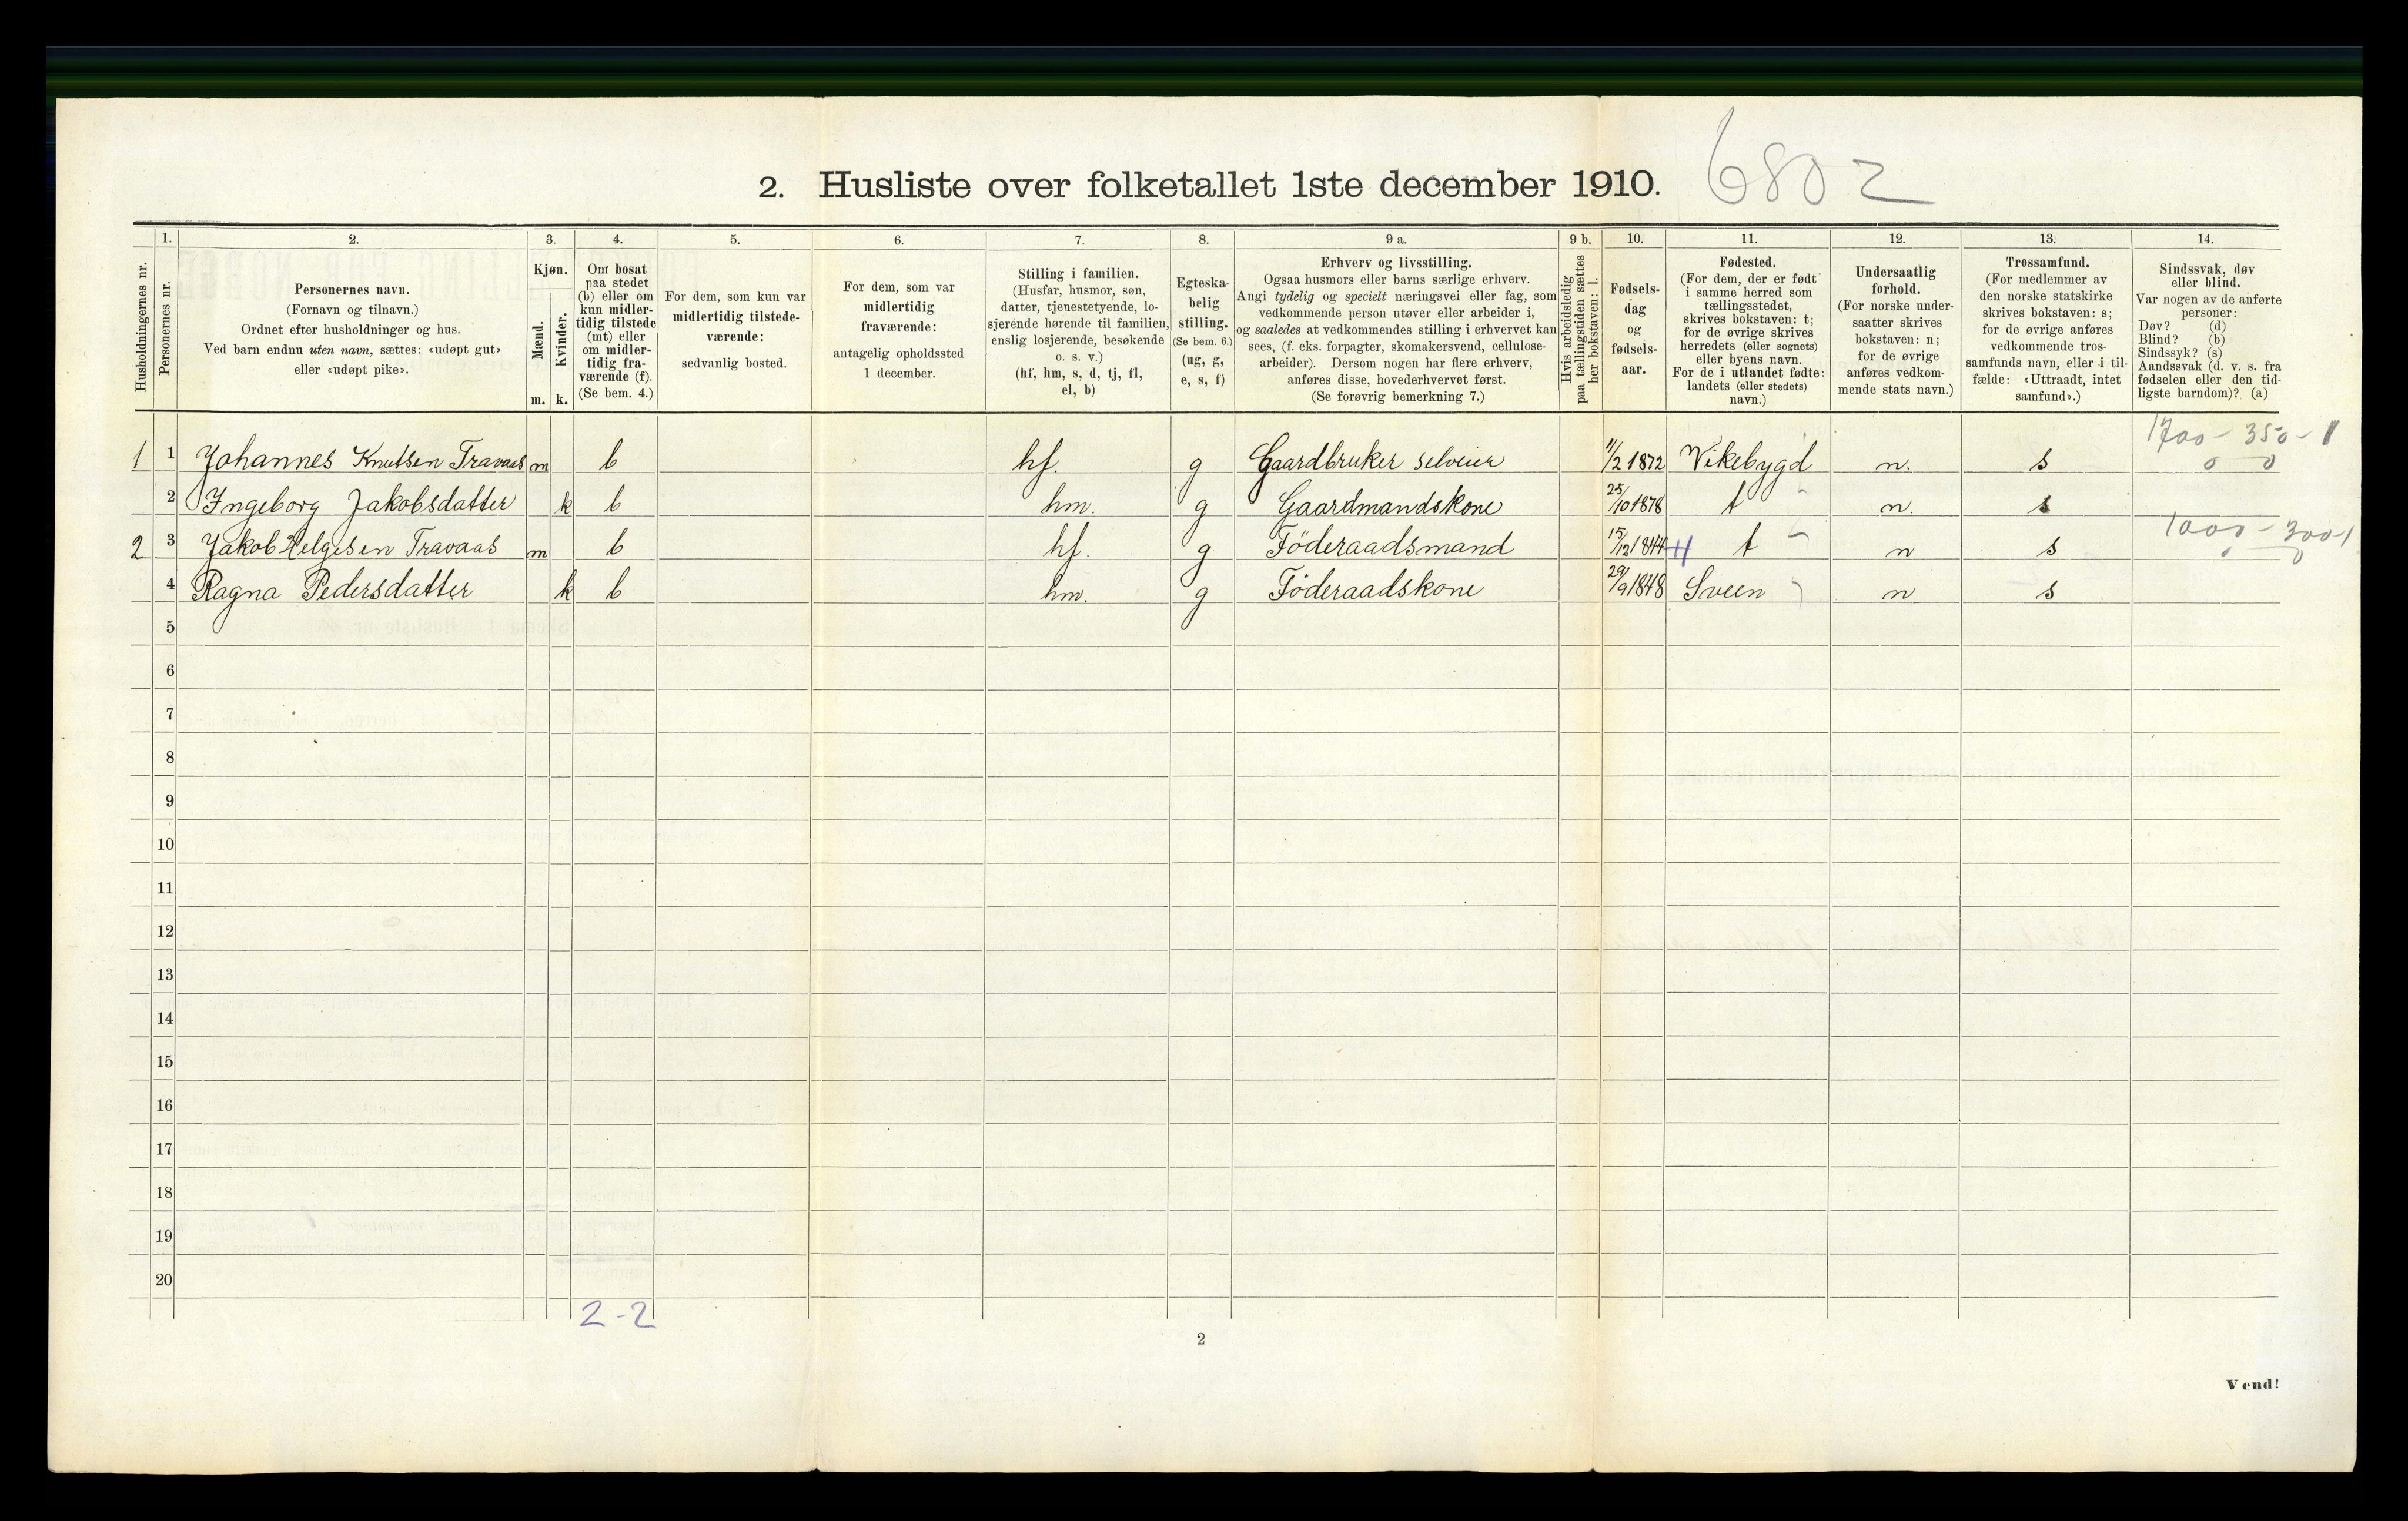 2. Husliste over folketallet 1ste december 1910. 6802
1. 2. 3. 4. 5. 6. 7. 8. 9 a. 9 b. 10. 11. 12. 13. 14.
Husholdningernes nr.
Personernes nr.
Personernes navn.
(Fornavn og tilnavn.)
Ordnet efter husholdninger og hus.
Ved barn endnu uten navn, sættes: «udøpt gut»
eller «udøpt pike».
Kjøn.
Mænd.
Kvinder.
m. k.
Om bosat
paa stedet
(b) eller om
kun midler-
tidig tilstede
(mt) eller
om midler-
tidig fra-
værende (f).
(Se bem. 4.)
For dem, som kun var
midlertidig tilstede-
værende:
sedvanlig bosted.
For dem, som var
midlertidig
fraværende:
antagelig opholdssted
1 december.
Stilling i familien.
(Husfar, husmor, søn,
datter, tjenestetyende, lo-
sjerende hørende til familien,
enslig losjerende, besøkende
o. s. v.)
(hf, hm, s, d, tj, fl,
el, b)
Egteska-
belig
stilling.
(Se bem. 6.)
(ug, g,
e, s, f)
Erhverv og livsstilling.
Ogsaa husmors eller barns særlige erhverv.
Angi tydelig og specielt næringsvei eller fag, som
vedkommende person utøver eller arbeider i,
og saaledes at vedkommendes stilling i erhvervet kan
sees, (f. eks. forpagter, skomakersvend, cellulose-
arbeider). Dersom nogen har flere erhverv,
anføres disse, hovederhvervet først.
(Se forøvrig bemerkning 7.)
Hvis arbeidsledig
paa tællingstiden sættes
her bokstaven: l.
Fødsels-
dag
og
fødsels-
aar.
Fødested.
(For dem, der er født
i samme herred som
tællingsstedet,
skrives bokstaven: t;
for de øvrige skrives
herredets (eller sognets)
eller byens navn.
For de i utlandet fødte:
landets (eller stedets)
navn.)
Undersaatlig
forhold.
(For norske under-
saatter skrives
bokstaven: n;
for de øvrige
anføres vedkom-
mende stats navn.)
Trossamfund.
(For medlemmer av
den norske statskirke
skrives bokstaven: s;
for de øvrige anføres
vedkommende tros-
samfunds navn, eller i til-
fælde: «Uttraadt, intet
samfund».)
Sindssvak, døv
eller blind.
Var nogen av de anførte
personer:
Døv? (d)
Blind? (b)
Sindssyk? (s)
Aandssvak (d. v. s. fra
fødselen eller den tid-
ligste barndom)? (a)
1700 - 350 - 1
1 1 Johannes Knutsen Travaas m b hf. g Gaardbruker selveier 1/2 1872 Vikebygd n. s 0 0
2 Ingeborg Jakobsdatter k b hm. g Gaardmandskone 25/10 1878 t n. s
1000 - 300-1
2 3 Jakob Helgesen Travaas m b hf. g Föderaadsmand 15/12 1844 t n s 0 0
4 Ragna Pedersdatter k b hm. g Föderaadskone 29/9 1848 Sveen n s
5
6
7
8
9
10
11
12
13
14
15
16
17
18
19
20
2-2
2
Vend!